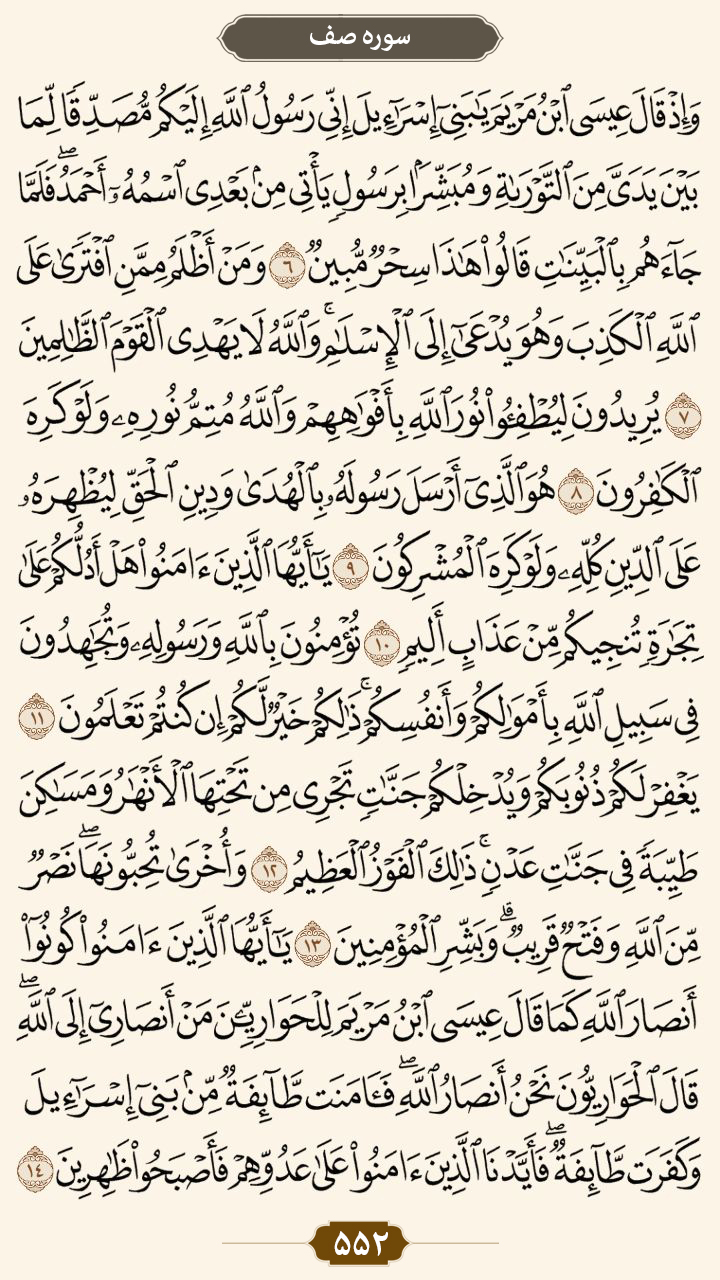 سوره صف
وَإِذْ قَالَ عِيسَى ٱبْنُ مَرْيَمَ يَـٰبَنِىٓ إِسْرَٰٓءِيلَ إِنِّى رَسُولُ ٱللَّهِ إِلَيْكُم مُّصَدِّقًا لِّمَا
بَيْنَ يَدَىَّ مِنَ ٱلتَّوْرَىٰةِ وَمُبَشِّرًۢا بِرَسُولٍ يَأْتِى مِنۢ بَعْدِى ٱسْمُهُۥٓ أَحْمَدُ ۖ فَلَمَّا
جَآءَهُم بِٱلْبَيِّنَـٰتِ قَالُوا۟ هَـٰذَا سِحْرٌ مُّبِينٌ ٦ وَمَنْ أَظْلَمُ مِمَّنِ ٱفْتَرَىٰ عَلَى
ٱللَّهِ ٱلْكَذِبَ وَهُوَ يُدْعَىٰٓ إِلَى ٱلْإِسْلَـٰمِ ۚ وَٱللَّهُ لَا يَهْدِى ٱلْقَوْمَ ٱلظَّـٰلِمِينَ
٧ يُرِيدُونَ لِيُطْفِـُٔوا۟ نُورَ ٱللَّهِ بِأَفْوَٰهِهِمْ وَٱللَّهُ مُتِمُّ نُورِهِۦ وَلَوْ كَرِهَ
ٱلْكَـٰفِرُونَ ٨ هُوَ ٱلَّذِىٓ أَرْسَلَ رَسُولَهُۥ بِٱلْهُدَىٰ وَدِينِ ٱلْحَقِّ لِيُظْهِرَهُۥ
عَلَى ٱلدِّينِ كُلِّهِۦ وَلَوْ كَرِهَ ٱلْمُشْرِكُونَ ٩ يَـٰٓأَيُّهَا ٱلَّذِينَ ءَامَنُوا۟ هَلْ أَدُلُّكُمْ عَلَىٰ
تِجَـٰرَةٍ تُنجِيكُم مِّنْ عَذَابٍ أَلِيمٍ ١٠ تُؤْمِنُونَ بِٱللَّهِ وَرَسُولِهِۦ وَتُجَـٰهِدُونَ
فِى سَبِيلِ ٱللَّهِ بِأَمْوَٰلِكُمْ وَأَنفُسِكُمْ ۚ ذَٰلِكُمْ خَيْرٌ لَّكُمْ إِن كُنتُمْ تَعْلَمُونَ ١١
يَغْفِرْ لَكُمْ ذُنُوبَكُمْ وَيُدْخِلْكُمْ جَنَّـٰتٍ تَجْرِى مِن تَحْتِهَا ٱلْأَنْهَـٰرُ وَمَسَـٰكِنَ
طَيِّبَةً فِى جَنَّـٰتِ عَدْنٍ ۚ ذَٰلِكَ ٱلْفَوْزُ ٱلْعَظِيمُ ١٢ وَأُخْرَىٰ تُحِبُّونَهَا ۖ نَصْرٌ
مِّنَ ٱللَّهِ وَفَتْحٌ قَرِيبٌ ۗ وَبَشِّرِ ٱلْمُؤْمِنِينَ ١٣ يَـٰٓأَيُّهَا ٱلَّذِينَ ءَامَنُوا۟ كُونُوٓا۟
أَنصَارَ ٱللَّهِ كَمَا قَالَ عِيسَى ٱبْنُ مَرْيَمَ لِلْحَوَارِيِّـۧنَ مَنْ أَنصَارِىٓ إِلَى ٱللَّهِ ۖ
قَالَ ٱلْحَوَارِيُّونَ نَحْنُ أَنصَارُ ٱللَّهِ ۖ فَـَٔامَنَت طَّآئِفَةٌ مِّنۢ بَنِىٓ إِسْرَٰٓءِيلَ
وَكَفَرَت طَّآئِفَةٌ ۖ فَأَيَّدْنَا ٱلَّذِينَ ءَامَنُوا۟ عَلَىٰ عَدُوِّهِمْ فَأَصْبَحُوا۟ ظَـٰهِرِينَ ١٤
۵۵۲